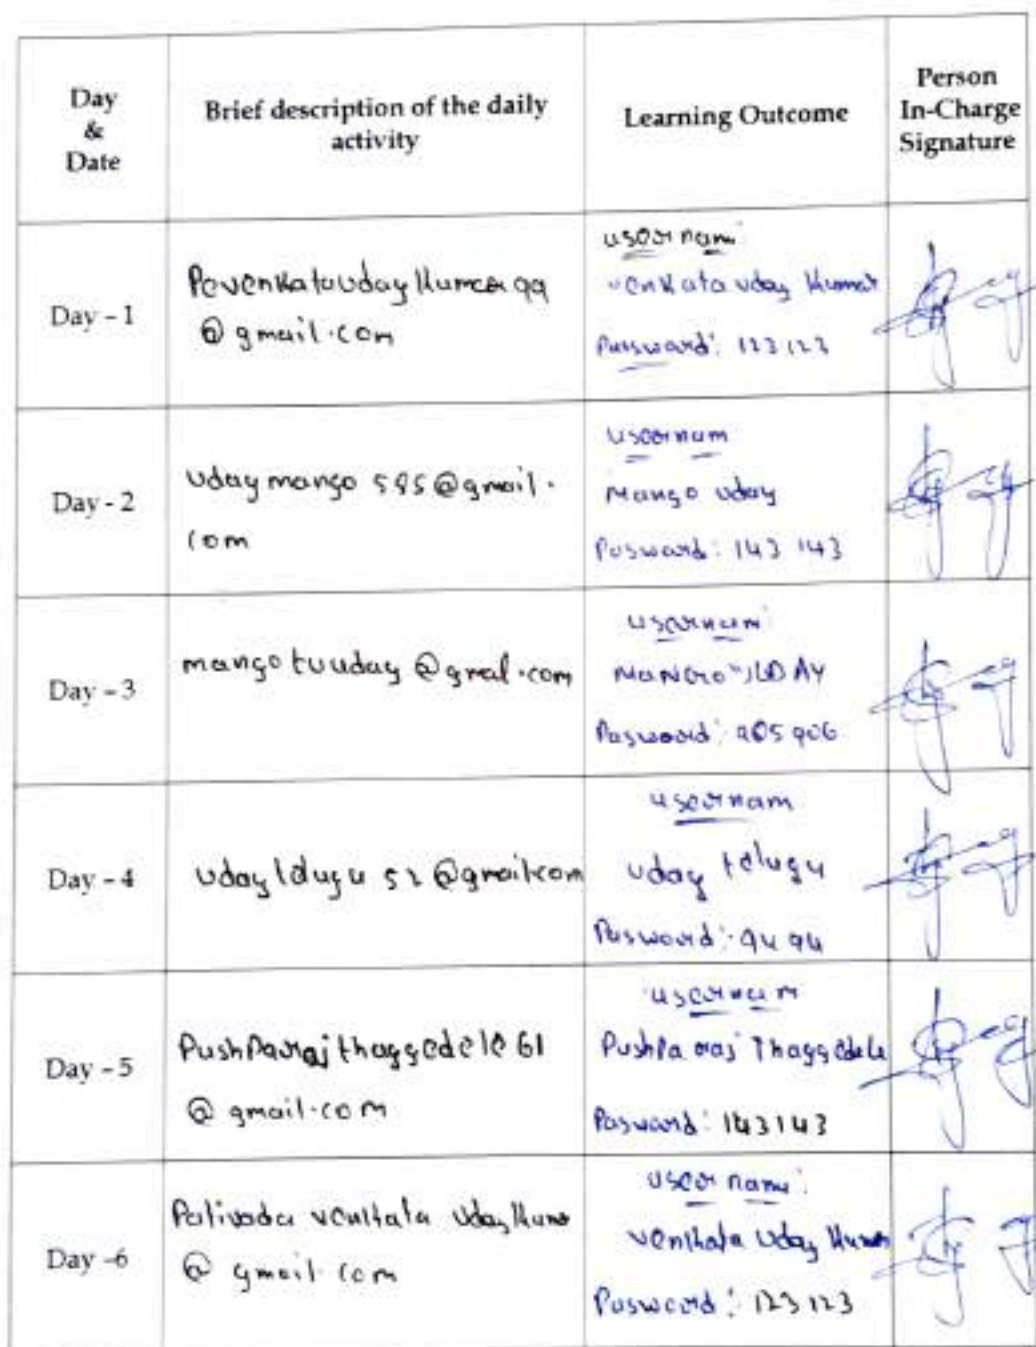 Day
&
Date
Brief description of the daily
activity
Learning Outcome
Person
In-Charge
Signature
Day - 1
Pevenkatauday Kumar 99
@ gmail.com
username:
venkata uday Kumar
Password: 123123
Day - 2
uday mango 595@gmail.
com
usernam
Mango uday
Pasword: 143 143
Day - 3
mango tvuday @gmal.com
usernam:
Pasword: 905 906
Day - 4
uday telugu 52 @gmail.com
usernam
uday telugu
Pasword: 9494
Day - 5
Pushparaj thaggedele 61
@ gmail.com
usernam
Pushpa raj Thaggedele
Pasword: 143143
Day -6
Palivada venkata uday Kumar
@ gmail.com
user name:
venkata uday Kumar
Pasword: 123123